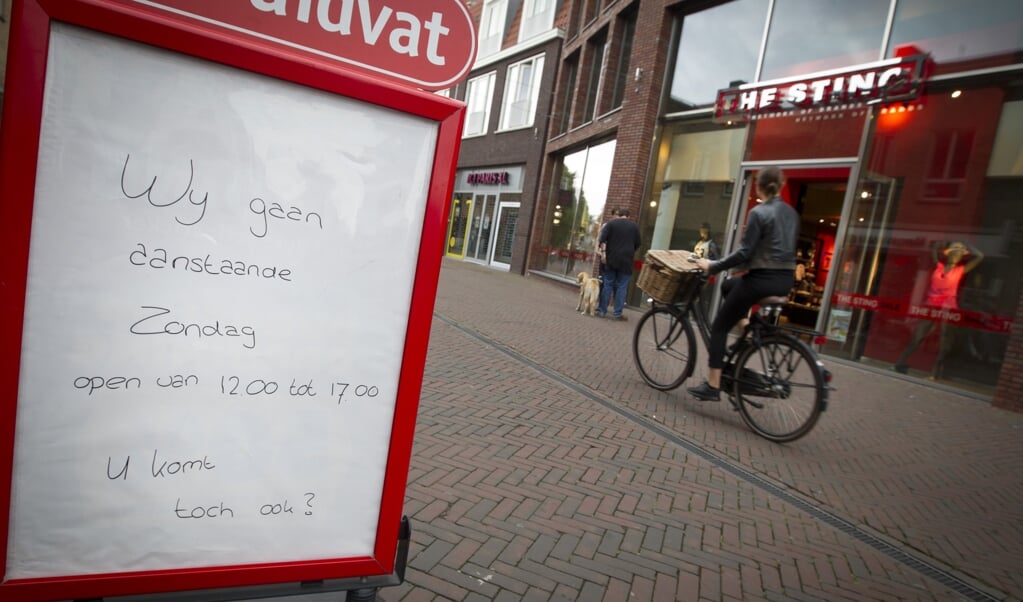 uidvat
Wij gaan
aanstaande
Zondag
open van 12.00 tot 17.00
U komt
toch ook?
THE STING
NETWORK OF
THE STING
THE STING